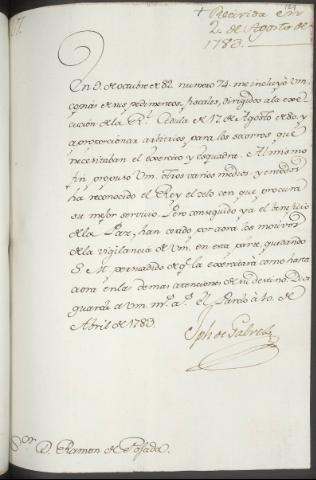 + Recivida en
2. de Agosto de
1783.
En 9. de octubre de 82. numero 74. me incluyó Vm.
copias de sus pedimentos fiscales, dirigidos a la exe-
cucion de la Rl. Cedula de 17 de Agosto de 80. y
a proporcionar arbitrios para los socorros que
necesitaban el exercito y esquadra. Al mismo
fin propuso Vm. otros varios medios, y en todos
ha reconocido el Rey el celo con que procura
su mejor servicio. Pero conseguido ya el beneficio
de la Paz, han cesado por aora los motivos
de la vigilancia de Vm. en esta parte, quedando
S. M. persuadido de q. la exercitará como hasta
aora en las demas atenciones de su destino. Dios
guarde a Vm. ms. as. El Pardo a 1o. de
Abril de 1783.
Jph de Galvez
Sor. D. Ramon de Posada.